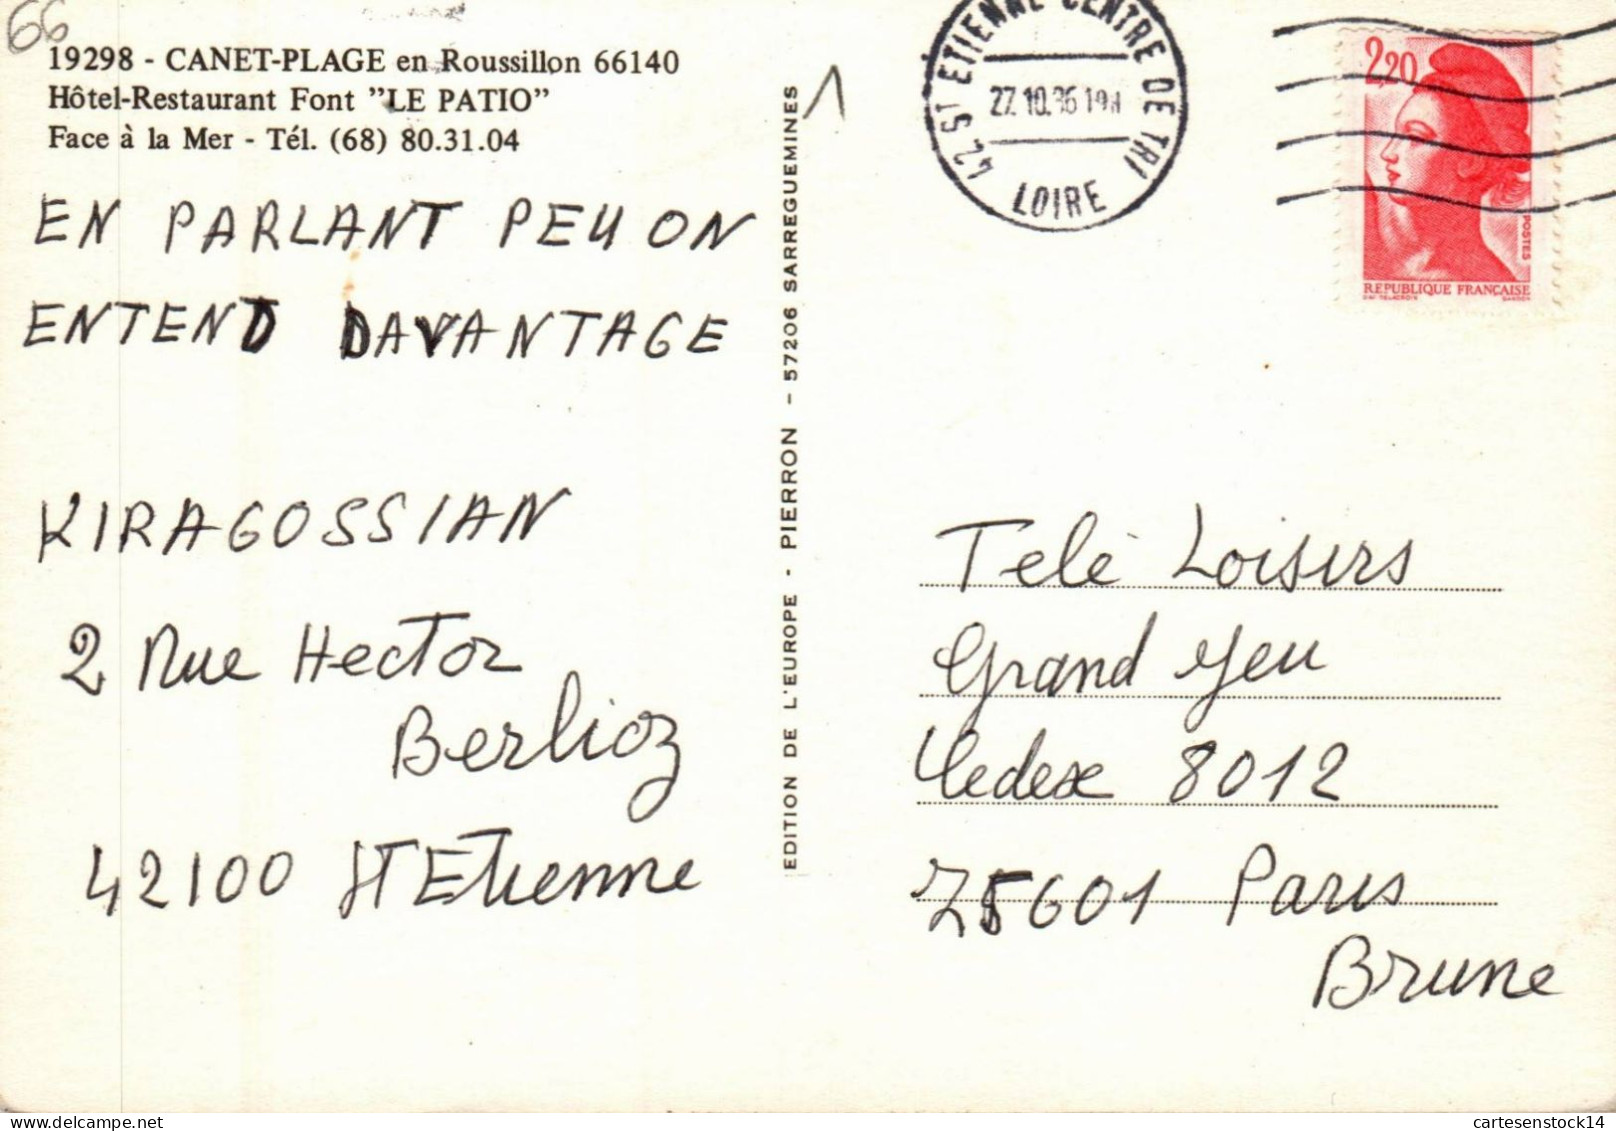 66
19298 - CANET-PLAGE en Roussillon 66140
Hôtel-Restaurant Font "LE PATIO"
Face à la Mer - Tél. (68) 80.31.04
EN PARLANT PEU ON
ENTEND DAVANTAGE
KIRAGOSSIAN
2 Rue Hector
Berlioz
42100 ST Etienne
EDITION DE L'EUROPE - PIERRON - 57206 SARREGUEMINES
42 ST ETIENNE CENTRE DE TRI
27.10.86 19H
LOIRE
2,20
POSTES
REPUBLIQUE FRANÇAISE
Telé Loisirs
Grand Jeu
Cedex 8012
75601 Paris
Brune
cartesenstock14